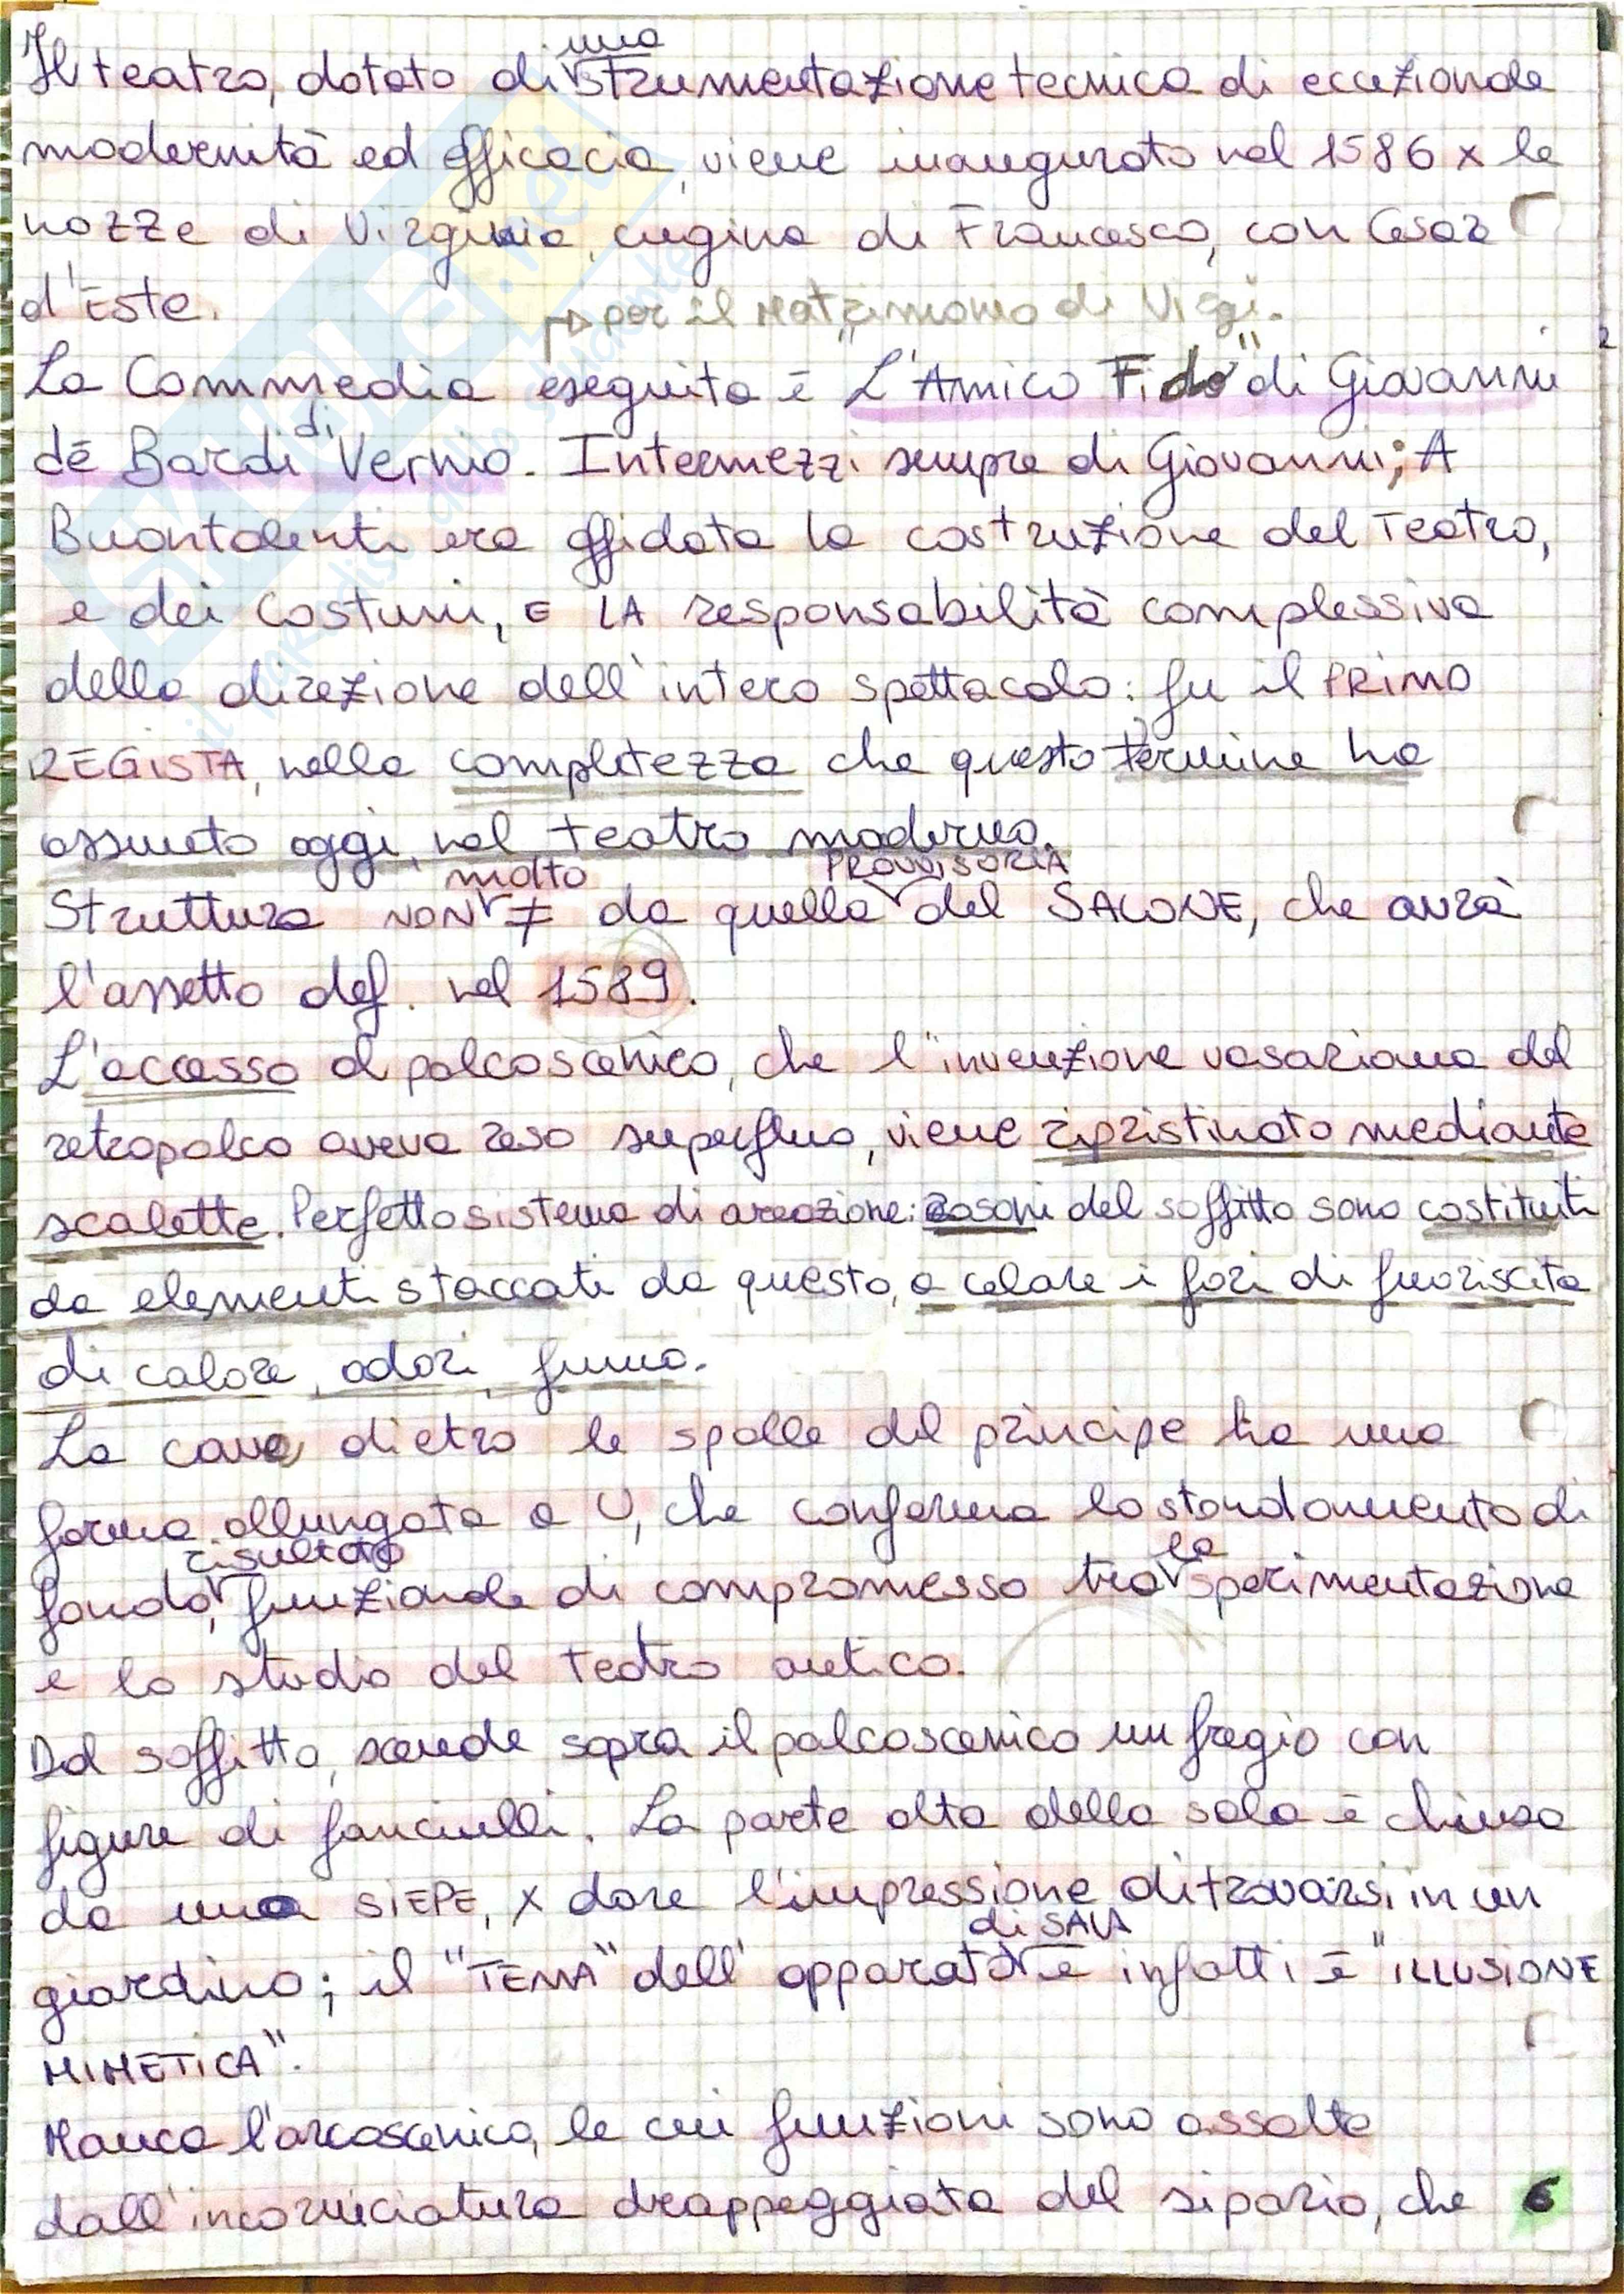 Il teatro, dotato di una strumentazione tecnica di eccezionale
modernità ed efficacia, viene inaugurato nel 1586 x le
nozze di Virginia, cugina di Francesco, con Cesare
d'Este.
per il matrimonio di Virgi.
La Commedia eseguita è "L'Amico Fido" di Giovanni
dè Bardi di Vernio. Intermezzi sempre di Giovanni; A
Buontalenti era affidata la costruzione del Teatro,
e dei costumi, E LA responsabilità complessiva
della direzione dell'intero spettacolo: fu il PRIMO
REGISTA, nella completezza che questo termine ha
assunto oggi, nel teatro moderno.
Struttura NON molto ≠ da quella PROVVISORIA del SALONE, che avrà
l'assetto def. nel 1589.
L'accesso al palcoscenico, che l'invenzione vasariana del
retropalco aveva reso superfluo, viene ripristinato mediante
scalette. Perfetto sistema di areazione: rosoni del soffitto sono costituiti
da elementi staccati da questo, a celare i fori di fuoriscita
di calore, odori, fumo.
La cavea dietro le spalle del principe ha una
forma allungata a U, che conferma lo stondamento di
fondo, risultato funzionale di compromesso tra la sperimentazione
e lo studio del teatro antico.
Dal soffitto, scende sopra il palcoscenico un fregio con
figure di fanciulli. La parte alta della sala è chiusa
da una SIEPE, x dare l'impressione di trovarsi in un
giardino; il "TEMA" dell'apparato di SALA è infatti è "ILLUSIONE
MIMETICA".
Manca l'arcoscenico, le cui funzioni sono assolte
dall'incorniciatura drappeggiata del sipario, che 6
SKUOLA.net
il paradiso dello studente